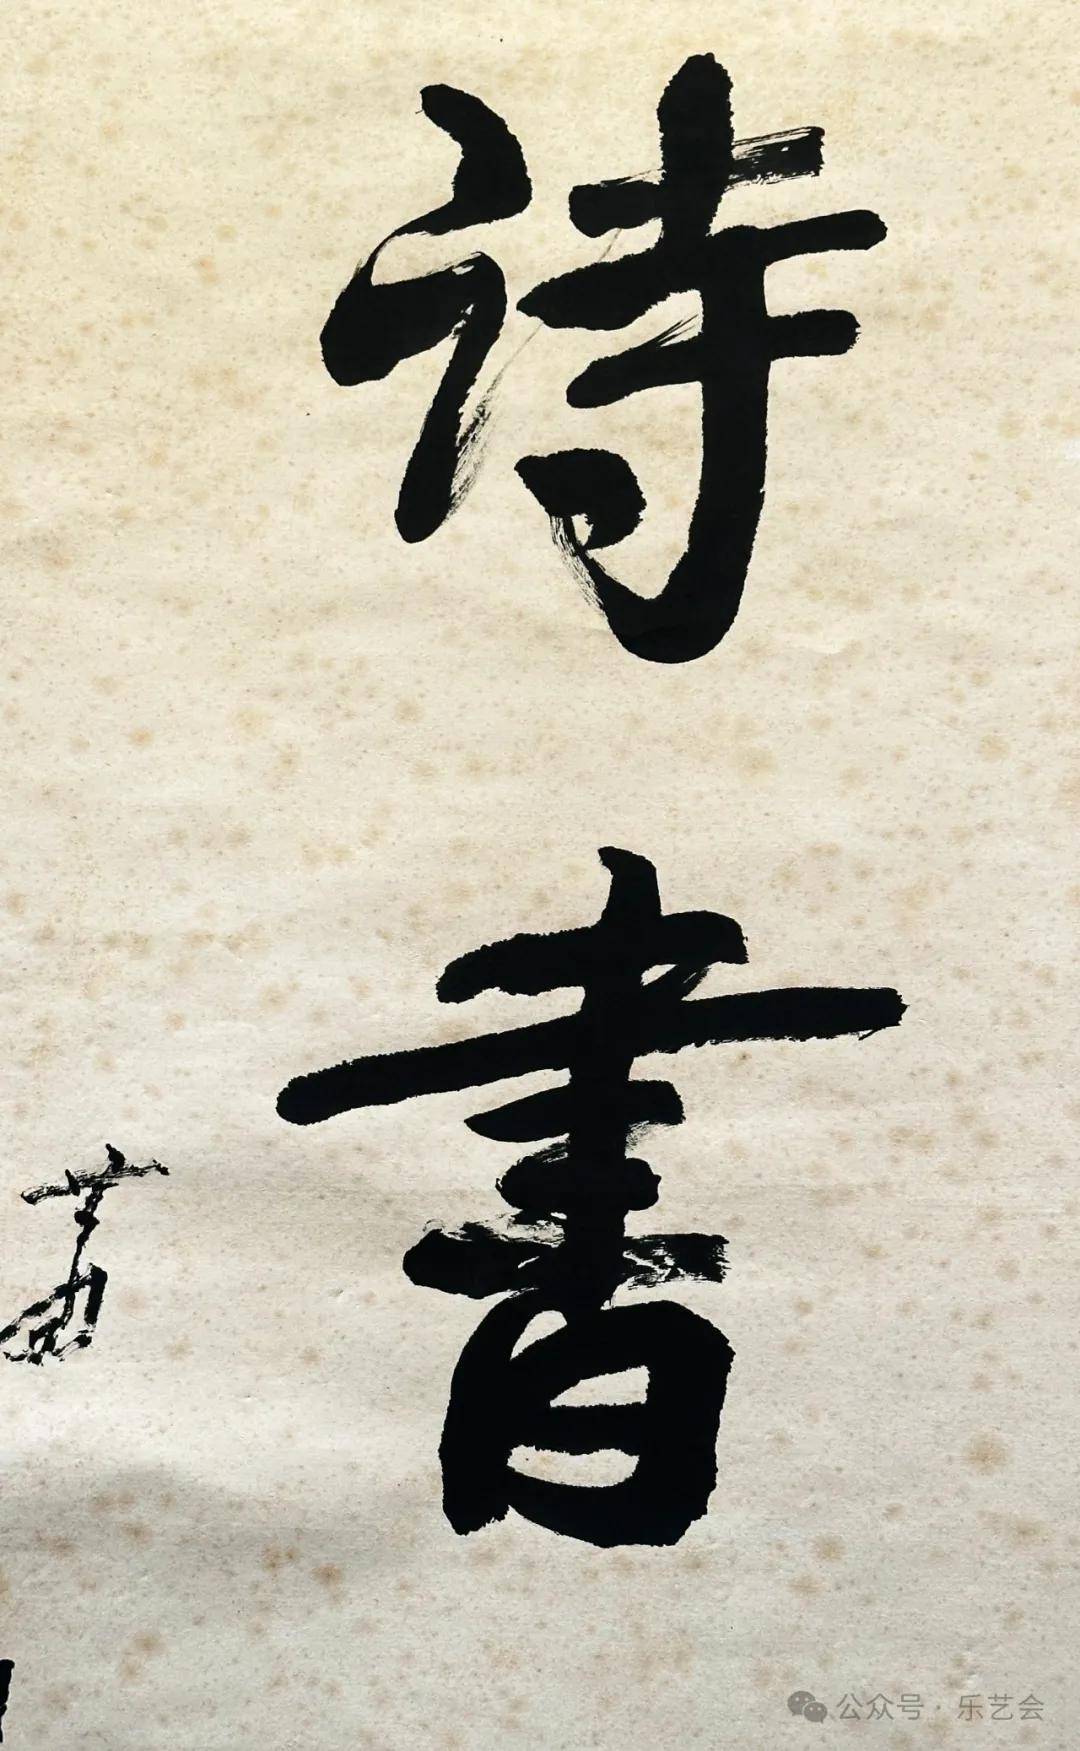 诗
書
公众号·乐艺会